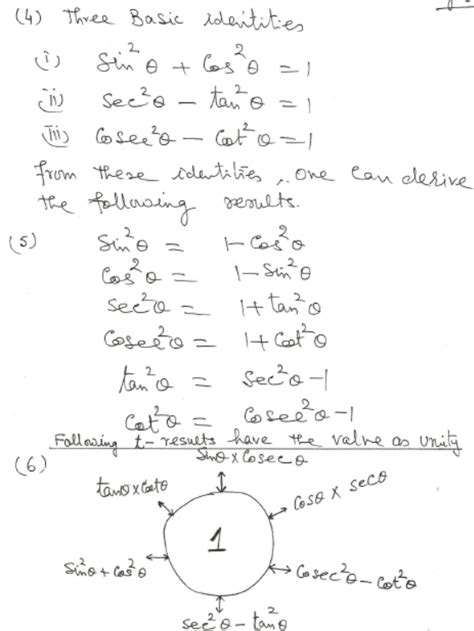 (4) Three Basic identities
(i) Sin²θ + Cos²θ = 1
(ii) sec²θ - tan²θ = 1
(iii) Cosec²θ - Cot²θ = 1
from these identities, one can derive
the following results.
(5) Sin²θ = 1-Cos²θ
Cos²θ = 1-Sin²θ
sec²θ = 1+tan²θ
Cosec²θ = 1+Cot²θ
tan²θ = Sec²θ-1
Cot²θ = Cosec²θ-1
Following t-results have the value as unity
(6) Sinθ x Cosec θ
tanθ x Cotθ
Cosθ x secθ
1
Sin²θ + Cos²θ
Cosec²θ - Cot²θ
sec²θ - tan²θ